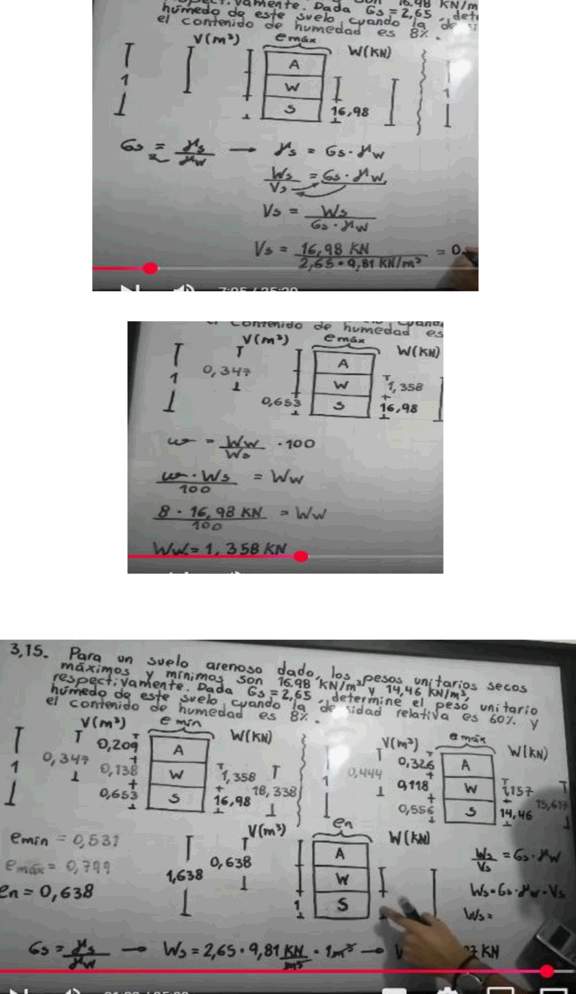 16.98 KN/m
húmedo de este suelo cuando la
el contenido de humedad es 8%.
V(m³) emáx W(KN)
A
W
S 16,98
1
1
Gs = γs/γw → γs = Gs·γw
Ws/Vs = Gs·γw
Vs = Ws/Gs·γw
Vs = 16,98 KN/2,65·9,81 KN/m³ = 0,
contenido de humedad es
V(m³) emáx W(KN)
1 0,347 A
W 1,358
0,653 S 16,98
w = Ww/Ws ·100
w·Ws/100 = Ww
8·16,98 KN/100 = Ww
Ww = 1,358 KN
3,15. Para un suelo arenoso dado, los pesos unitarios secos
máximos y mínimos son 16.98 KN/m³ y 14,46 KN/m³
respectivamente. Dada Gs = 2,65, determine el peso unitario
húmedo de este suelo, cuando la densidad relativa es 60% y
el contenido de humedad es 8%.
V(m³) e mín W(KN) V(m³) emáx W(KN)
0,209 A 0,326 A
1 0,347 0,138 W 1,358 18,338 1 0,444 0,118 W 1,157
0,653 S 16,98 0,556 S 14,46
emín = 0,531 V(m³) en W(KN)
emáx = 0,799 1,638 0,638 A Ws/Vs = Gs·γw
en = 0,638 W Ws=Gs·γw·Vs
1 S Ws=
Gs = γs/γw → Ws = 2,65·9,81 KN/m³ · 1m³ → KN